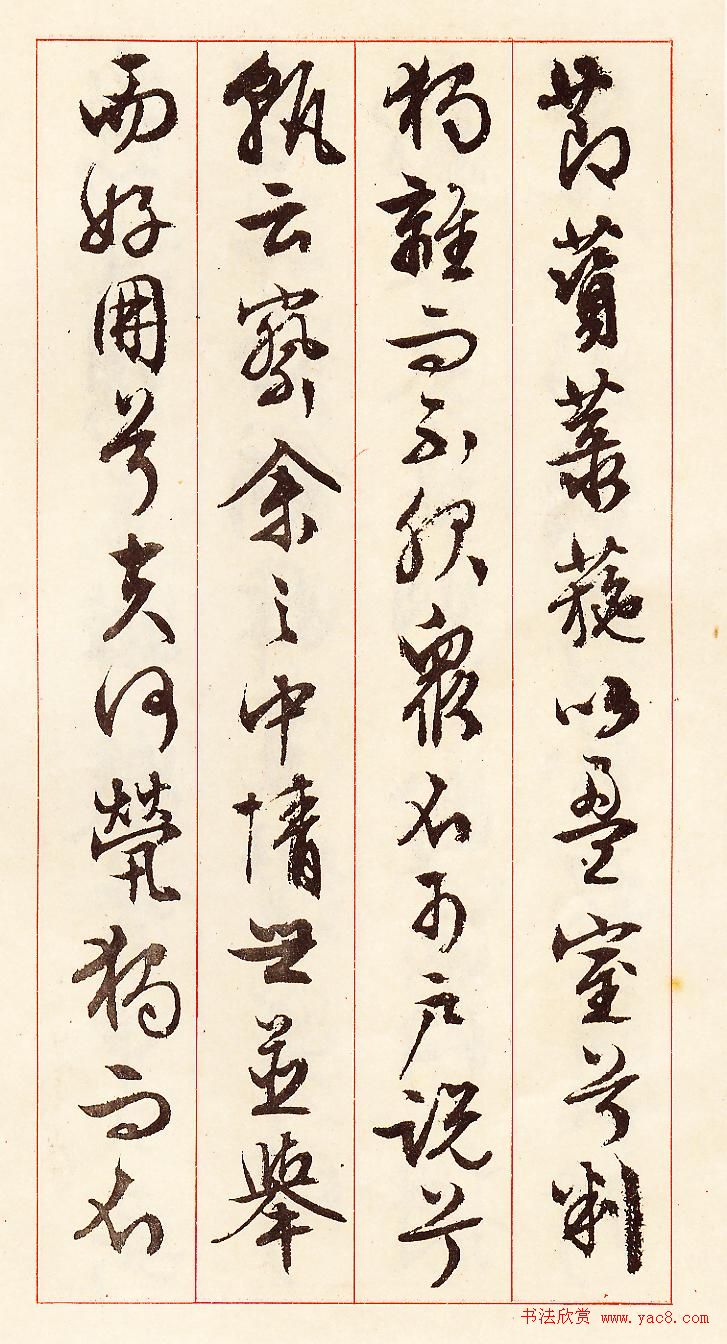 節薋菉葹以盈室兮判
獨離而不服眾不可户說兮
孰云察余之中情世並舉
而好朋兮夫何煢獨而不
书法欣赏 www.yac8.com